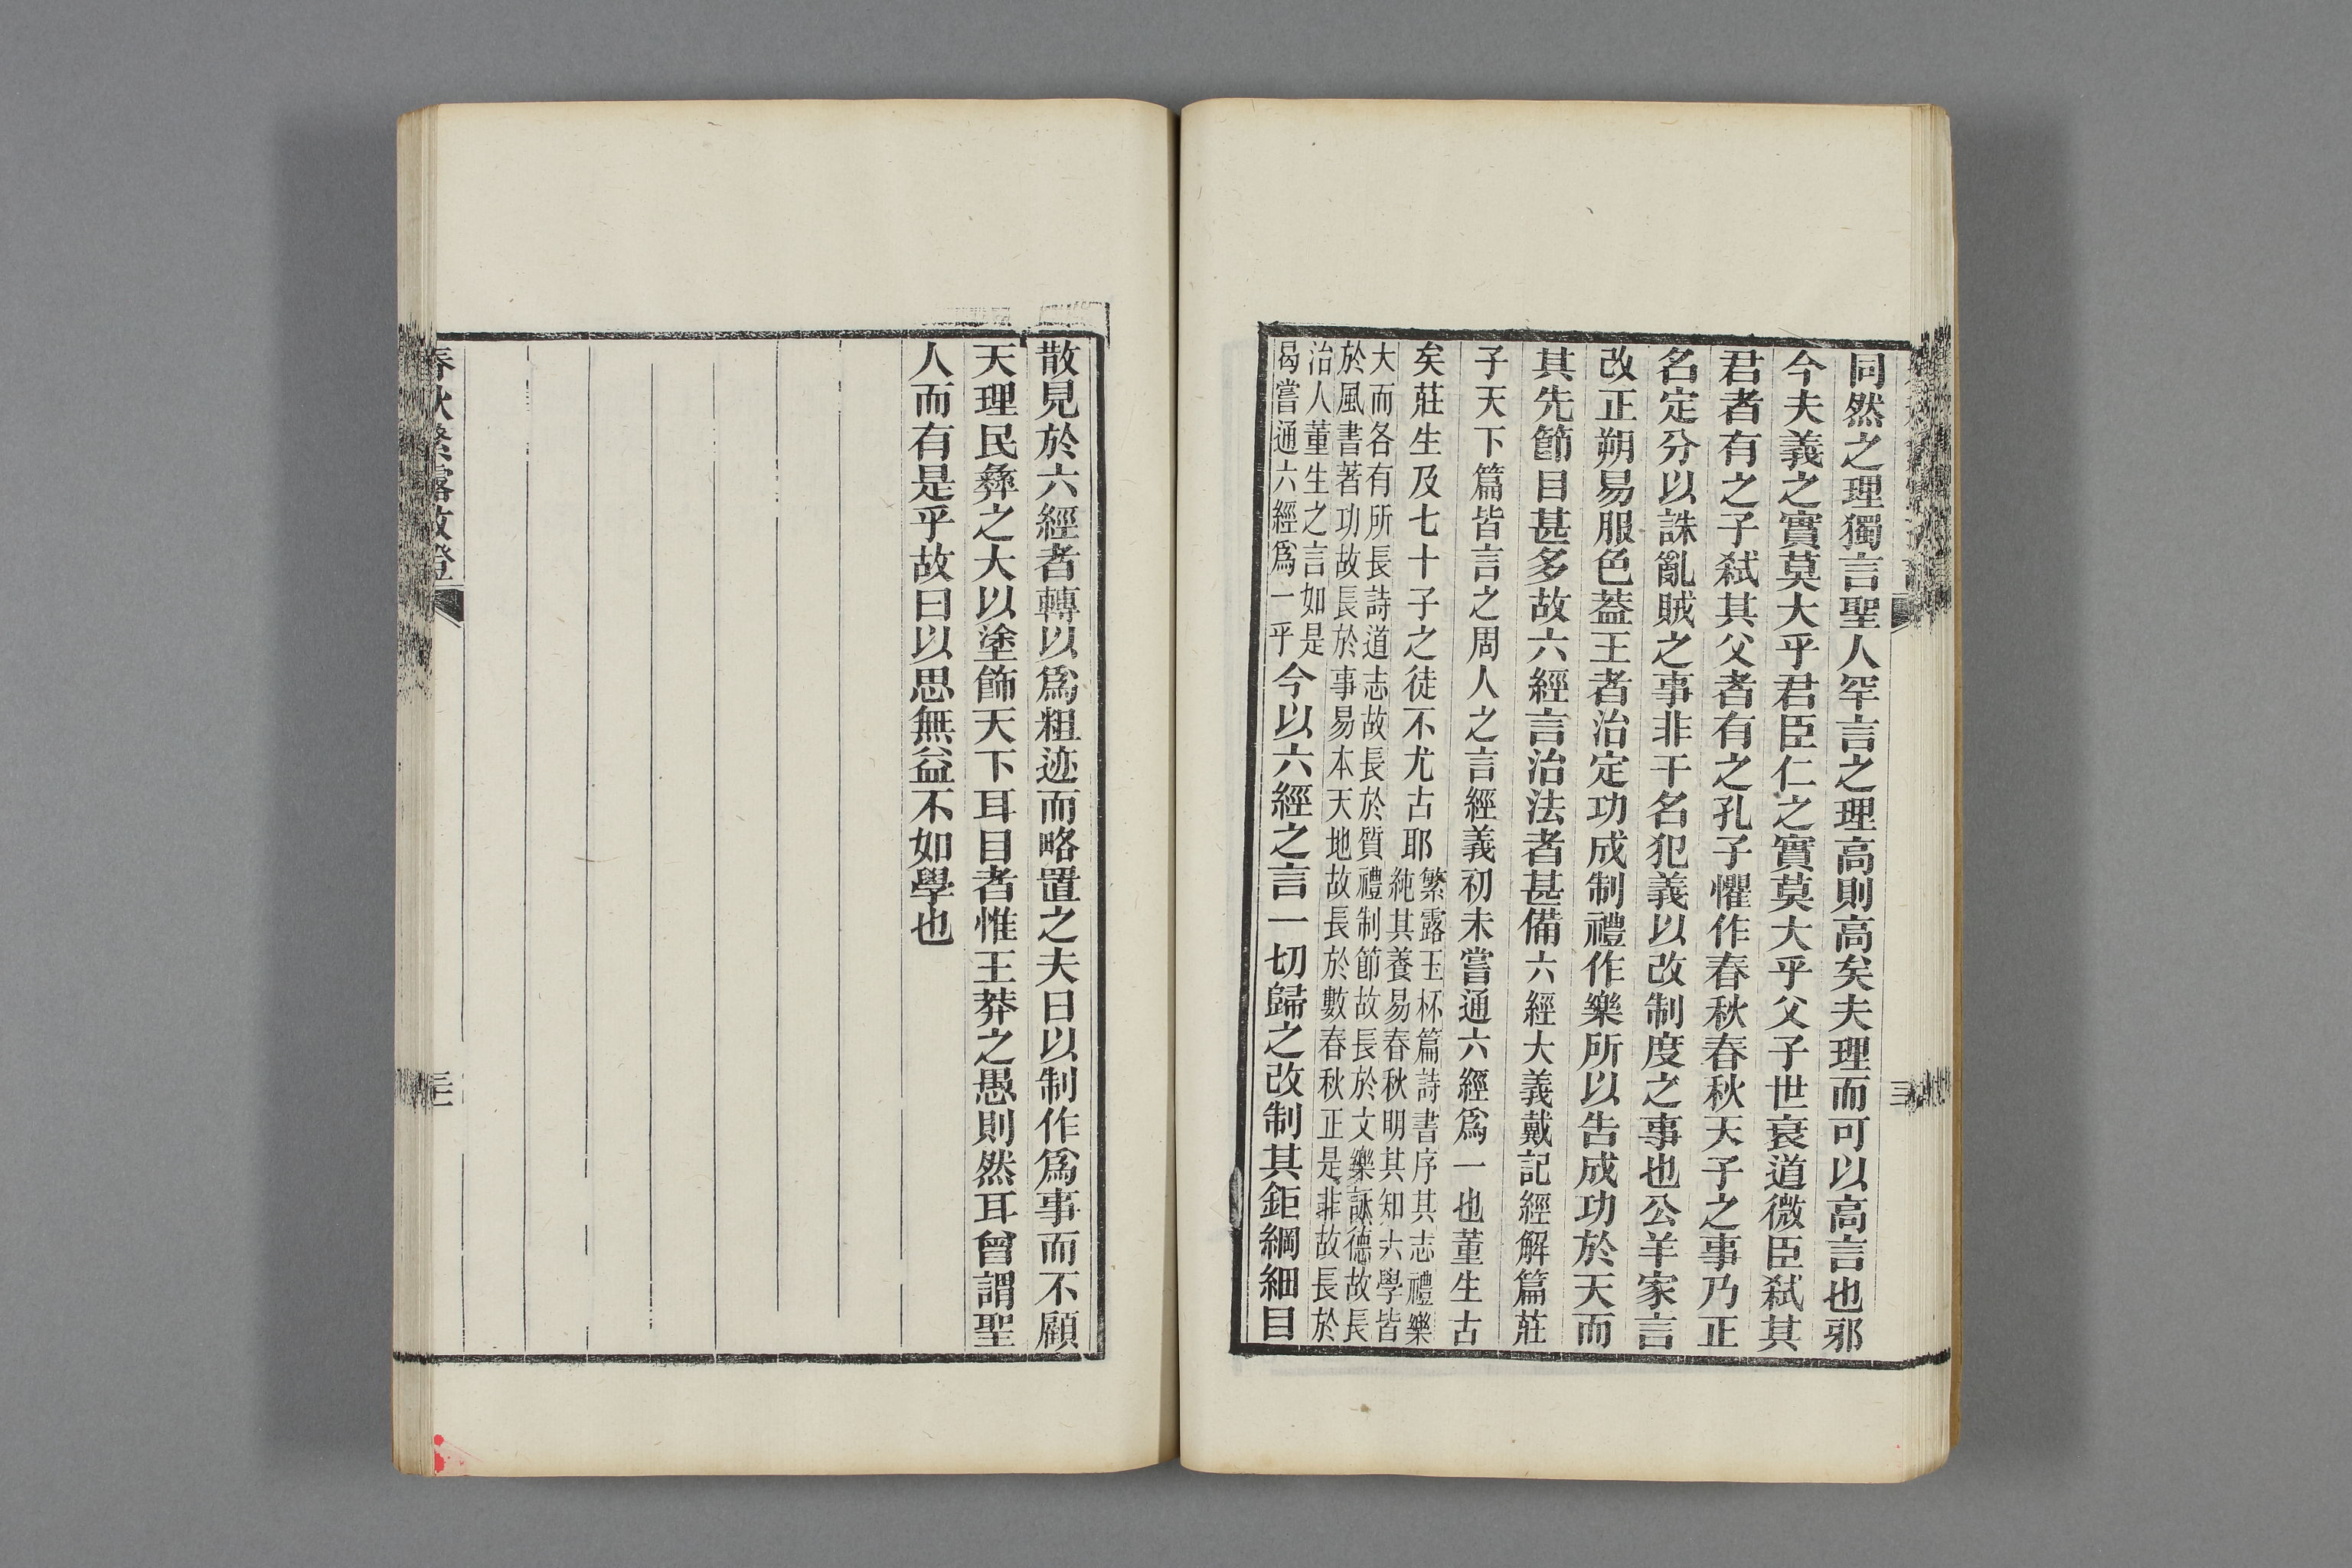 同然之理獨言聖人罕言之理高則高矣夫理而可以高言也邪
今夫義之實莫大乎君臣仁之實莫大乎父子世衰道微臣弑其
君者有之子弑其父者有之孔子懼作春秋春秋天子之事乃正
名定分以誅亂賊之事非干名犯義以改制度之事也公羊家言
改正朔易服色葢王者治定功成制禮作樂所以告成功於天而
其先節目甚多故六經言治法者甚備六經大義戴記經解篇莊
子天下篇皆言之周人之言經義初未嘗通六經爲一也董生古
矣莊生及七十子之徒不尤古耶繁露玉杯篇詩書序其志禮樂
純其養易春秋明其知六學皆
大而各有所長詩道志故長於質禮制節故長於文樂詠德故長
於風書著功故長於事易本天地故長於數春秋正是非故長於
治人董生之言如是
曷嘗通六經爲一乎今以六經之言一切歸之改制其鉅綱細目
散見於六經者轉以爲粗迹而略置之夫日以制作爲事而不顧
天理民彝之大以塗飾天下耳目者惟王莽之愚則然耳曾謂聖
人而有是乎故曰以思無益不如學也
春秋繁露攷證